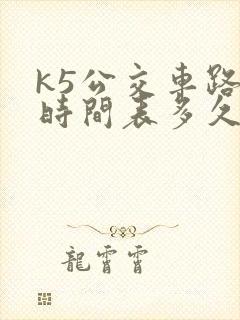 k5公交車路
時間表多久
龍霄霄